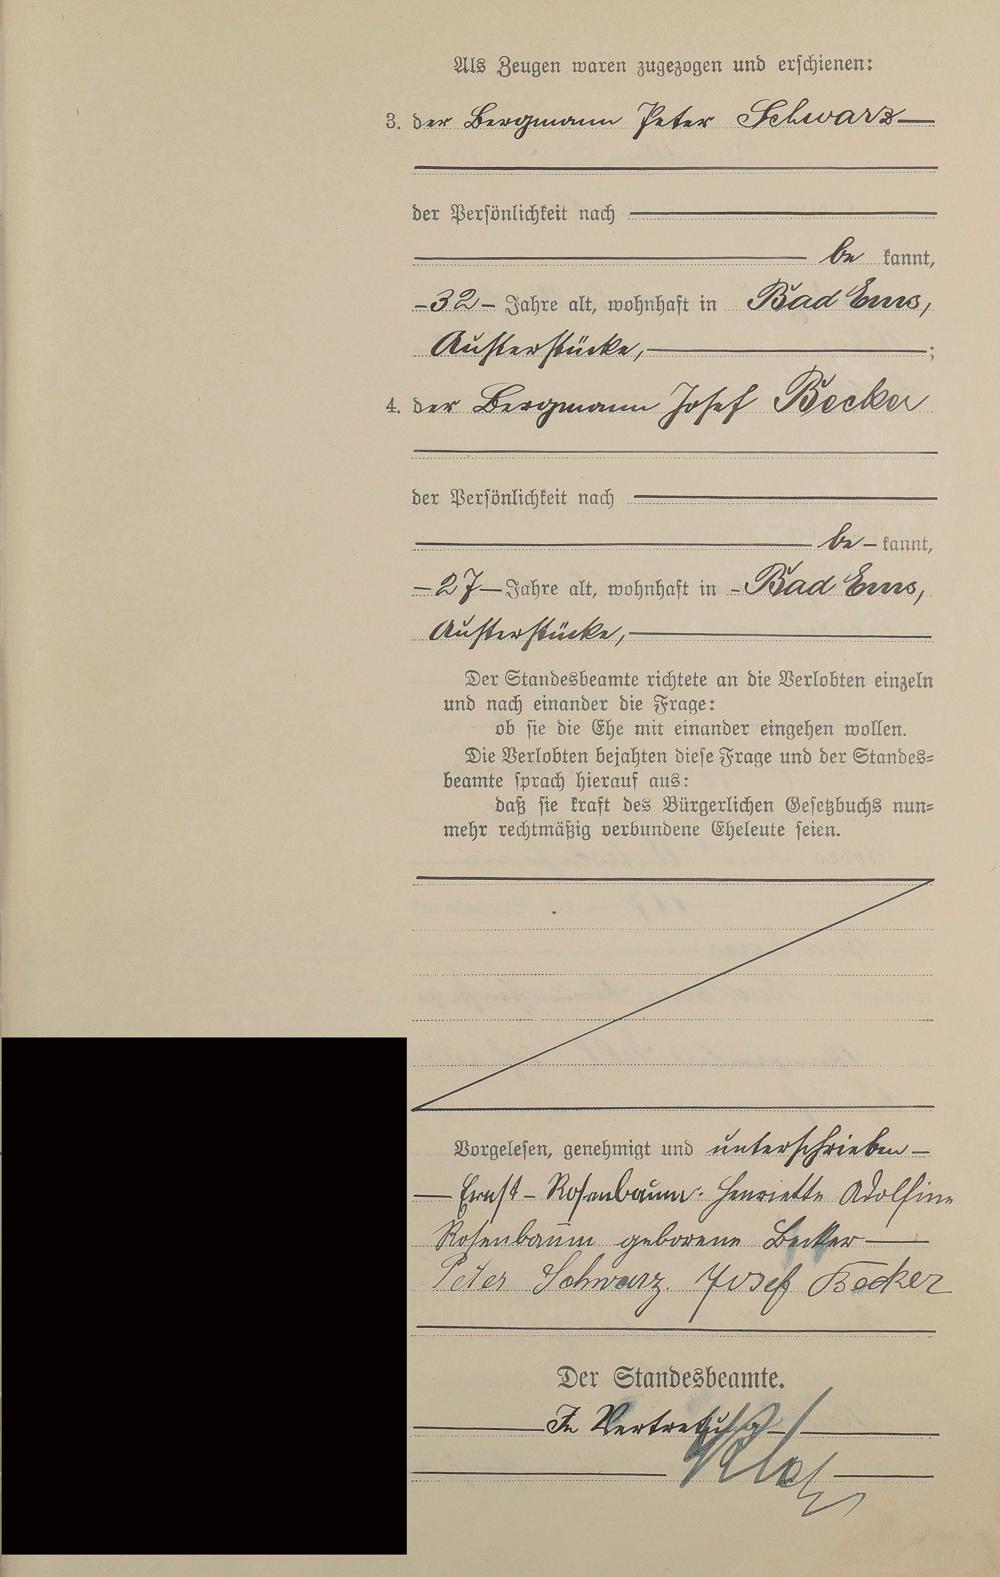 Als Zeugen waren zugezogen und erschienen:
3. der Bergmann Peter Schwarz
der Persönlichkeit nach
be kannt,
-32- Jahre alt, wohnhaft in Bad Ems,
Austerstücke, ;
4. der Bergmann Josef Becker
der Persönlichkeit nach
be- kannt,
-27- Jahre alt, wohnhaft in -Bad Ems,
Austerstücke,
Der Standesbeamte richtete an die Verlobten einzeln
und nach einander die Frage:
ob sie die Ehe mit einander eingehen wollen.
Die Verlobten bejahten diese Frage und der Standes=
beamte sprach hierauf aus:
daß sie kraft des Bürgerlichen Gesetzbuchs nun=
mehr rechtmäßig verbundene Eheleute seien.
Vorgelesen, genehmigt und unterschrieben
Ernst Rosenbaum. Henriette Adolfine
Rosenbaum geborene Becker
Peter Schwarz. Josef Becker
Der Standesbeamte.
In Vertretung